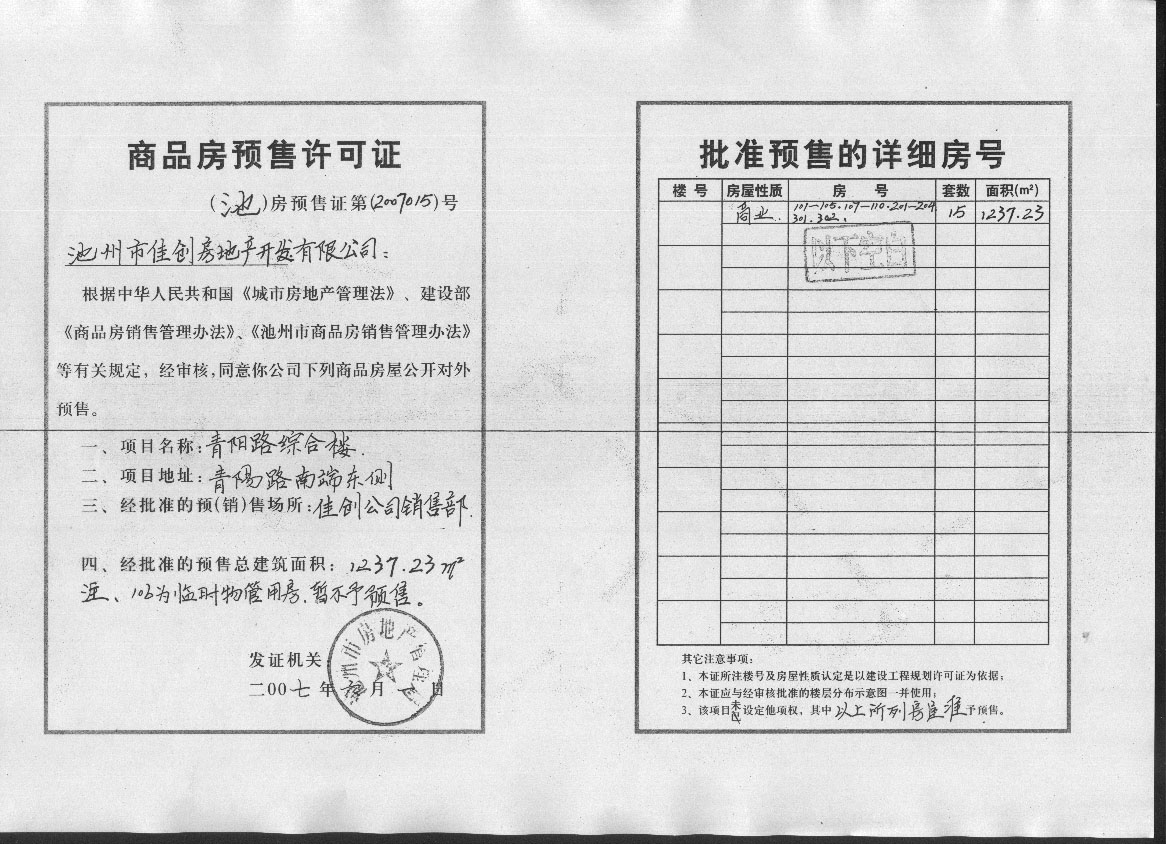 商品房预售许可证
(池)房预售证第(2007015)号
池州市佳创房地产开发有限公司:
根据中华人民共和国《城市房地产管理法》、建设部
《商品房销售管理办法》、《池州市商品房销售管理办法》
等有关规定，经审核,同意你公司下列商品房屋公开对外
预售。
一、项目名称:青阳路综合楼.
二、项目地址:青陽路南端东侧
三、经批准的预(销)售场所:佳创公司销售部.
四、经批准的预售总建筑面积: 1237.23m²
注、106为临时物管用房.暂不予预售。
发证机关:
二00七年 月 日
池州市房地产管
批准预售的详细房号
楼号 房屋性质 房号 套数 面积(m²)
商业. 101—105.107—110.201—204. 15 1237.23
301.302.
以下空白
其它注意事项:
1、本证所注楼号及房屋性质认定是以建设工程规划许可证为依据;
2、本证应与经审核批准的楼层分布示意图一并使用;
3、该项目未设定他项权，其中以上所列房屋准予预售。